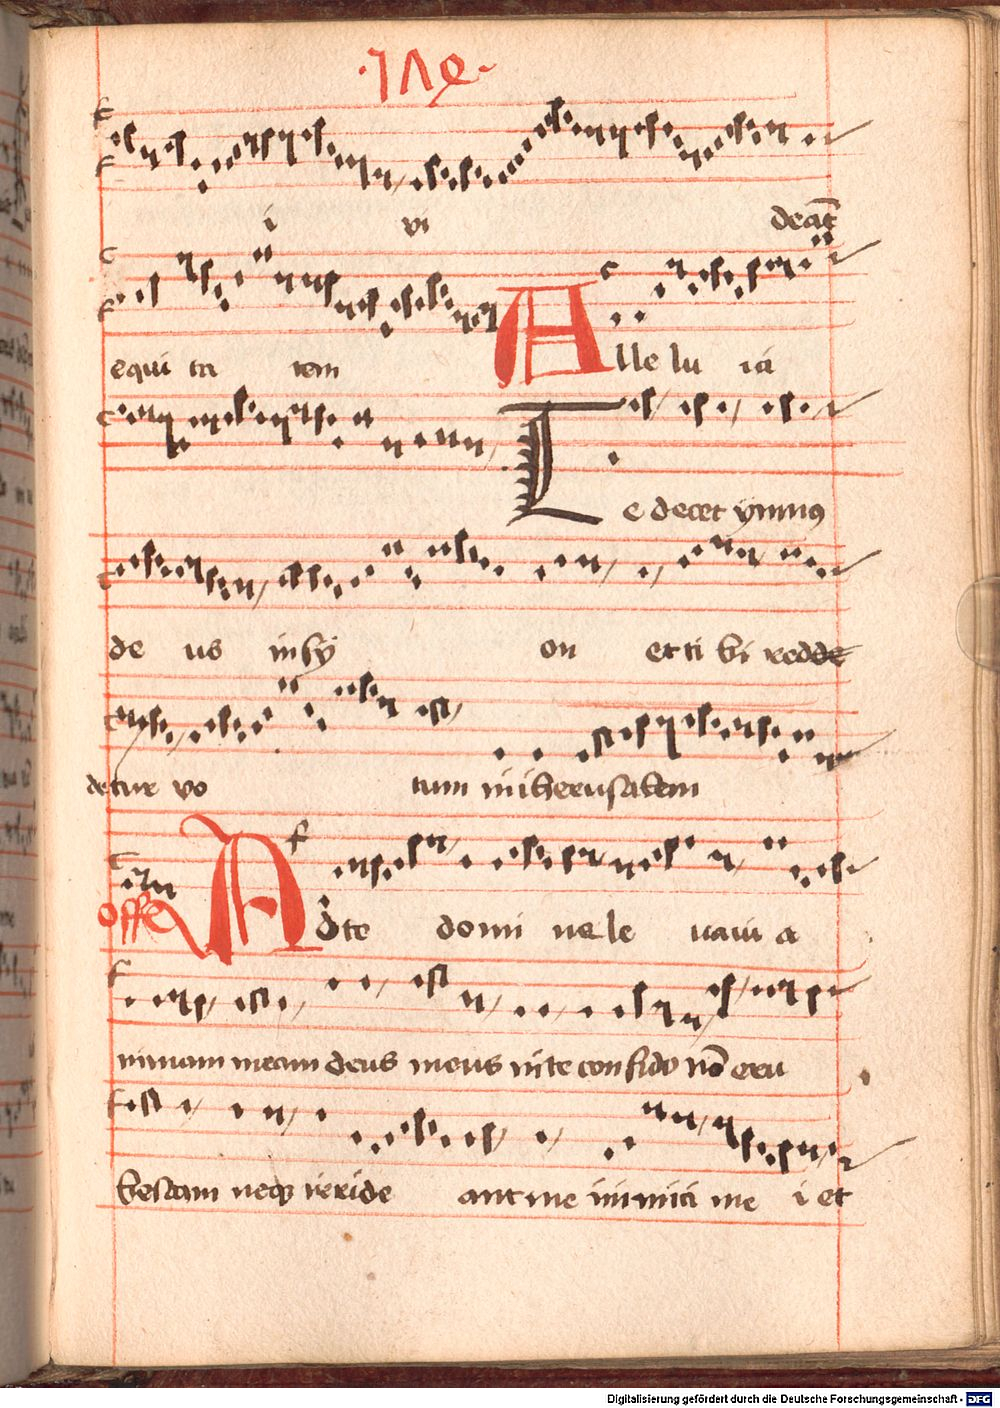 i vi deāt
equi ta tem Alle lu ia
Te decet ymnus
de us in sy on et ti bi redde
detur vo tum in iherusalem
Offe Ad te domi ne le uaui a
nimam meam deus meus in te confido nō eru
bescam neq irride ant me inimici me i et
Digitalisierung gefördert durch die Deutsche Forschungsgemeinschaft - DFG